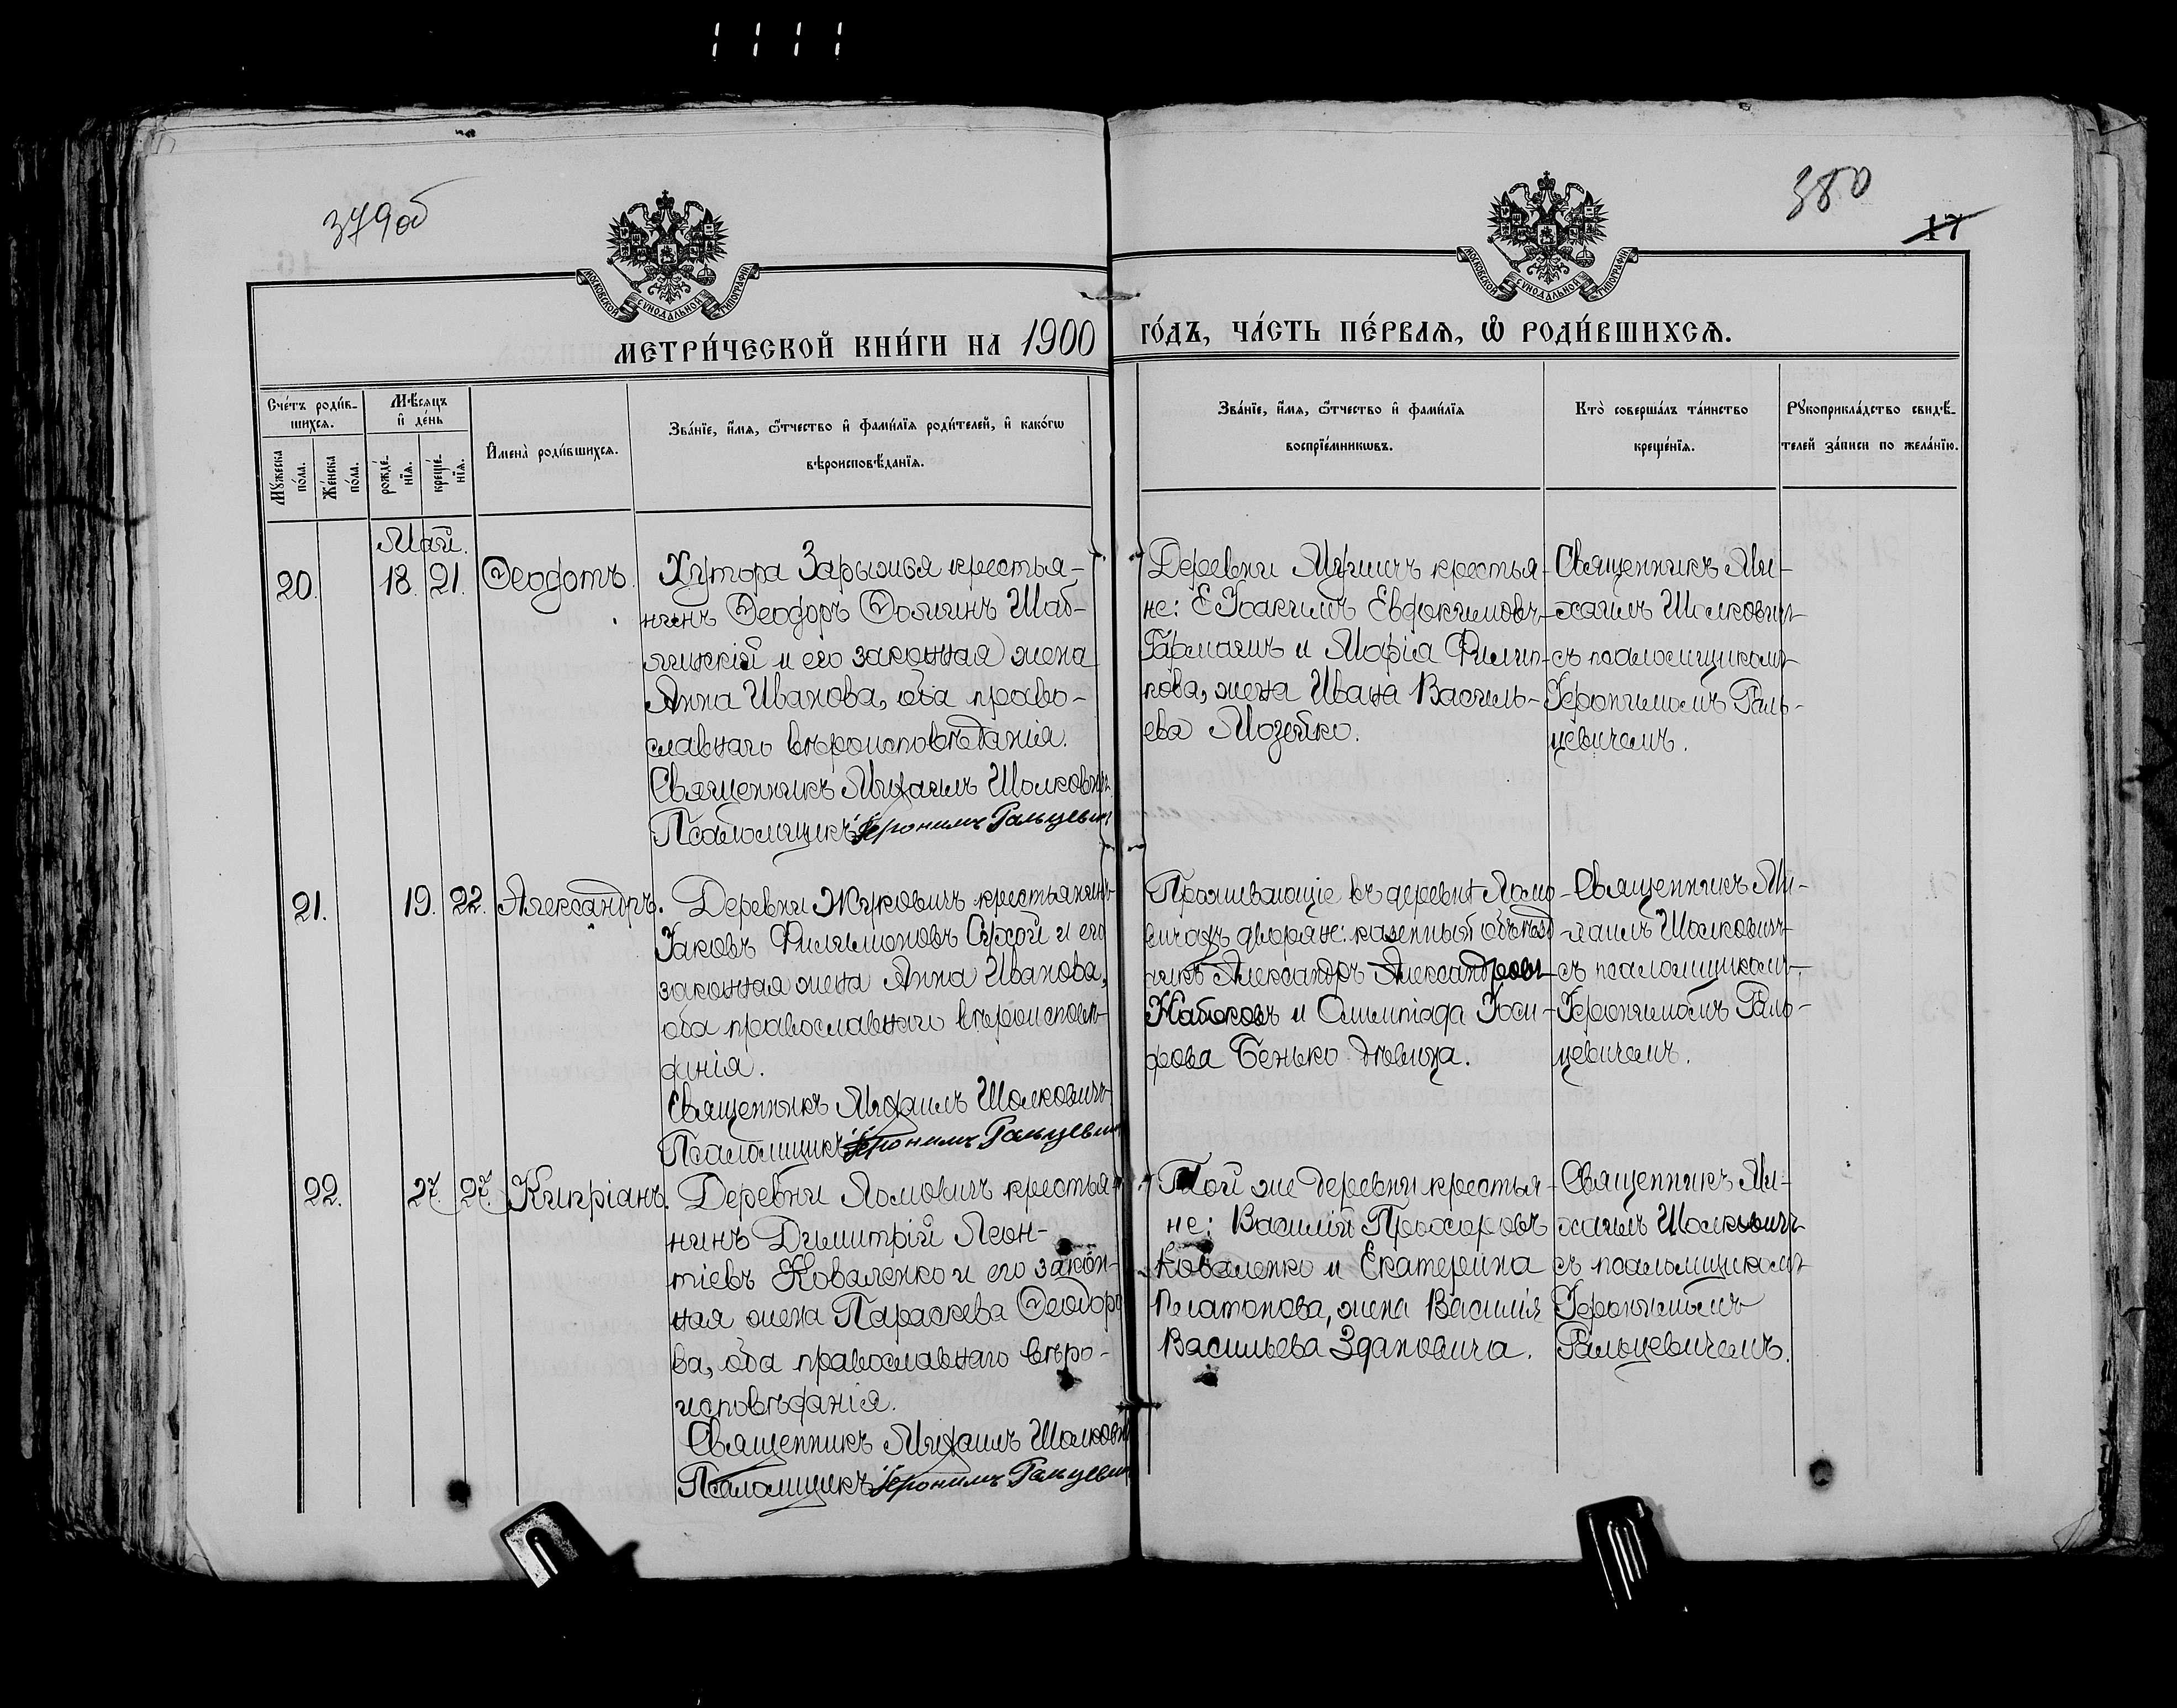 379об
380
17
МОСКОВСКОЙ СѴНОДАЛЬНОЙ ТИПОГРАФІИ
МОСКОВСКОЙ СѴНОДАЛЬНОЙ ТИПОГРАФІИ
МЕТРИ́ЧЕСКОЙ КНИ́ГИ НА 1900
ГО́ДЪ, ЧА́СТЬ ПЕ́РВАѦ, Ѡ҆ РОДИ́ВШИХСѦ.
Сче́тъ роди́в-
шихсѧ.
Мꙋ́жеска
по́ла.
Же́нска
по́ла.
Мѣ́сѧцъ
и҆ де́нь
рожде́-
нїѧ.
креще́-
нїѧ.
И҆мена̀ роди́вшихсѧ.
Зва́нїе, и҆́мѧ, ѻ҆́тчество и҆ фами́лїѧ роди́телей, и҆ како́гѡ
вѣроисповѣ́данїѧ.
Зва́нїе, и҆́мѧ, ѻ҆́тчество и҆ фами́лїѧ
воспрїе́мникѡвъ.
Кто̀ соверша́лъ та́инство
креще́нїѧ.
Рꙋкоприкла́дство свидѣ́-
телей за́писи по жела́нїю.
Май.
20.
18. 21.
Ѳеодотъ.
Хутора Зарыжья крестья-
нинъ Ѳеодоръ Ѳоминъ Шаб-
линскій и его законная жена
Анна Иванова, оба право-
славнаго вѣроисповѣданія.
Священникъ Михаилъ Шолкович
Псаломщикъ Іеронимъ Гальцевич
Деревни крестья-
не: Іоакимъ Евдокимовъ
Гармагинъ и Марія Филип-
пова, жена Ивана Василь-
ева Мозейко.
Священникъ Ми-
хаилъ Шолковичъ
съ псаломщикомъ
Іеронимомъ Галь-
цевичемъ.
21.
19. 22.
Александръ.
Деревни Жуковичъ крестьянинъ
Іаковъ Филимоновъ Сухой и его
законная жена Анна Иванова,
оба православнаго вѣроисповѣ-
данія.
Священникъ Михаилъ Шолковичъ
Псаломщикъ Іеронимъ Гальцевич
Проживающіе въ деревнѣ Ломо-
вичахъ дворяне: казенный объѣзд-
чикъ Александръ Александровъ
Набоковъ и Олимпіада Іоси-
фова Бенько дѣвица.
Священникъ Ми-
хаилъ Шолковичъ
съ псаломщикомъ
Іеронимомъ Галь-
цевичемъ.
22.
27. 27.
Кипріанъ.
Деревни Ломовичъ крестья-
нинъ Димитрій Леон-
тіевъ Коваленко и его закон-
ная жена Параскева Ѳеодоро
ва, оба православнаго вѣро-
исповѣданія.
Священникъ Михаилъ Шолкович
Псаломщикъ Іеронимъ Гальцевич
Той же деревни крестья-
не: Василій Прохоровъ
Коваленко и Екатерина
Платонова, жена Василія
Васильева Здановича.
Священникъ Ми-
хаилъ Шолковичъ
съ псаломщикомъ
Іеронимомъ
Гальцевичемъ.